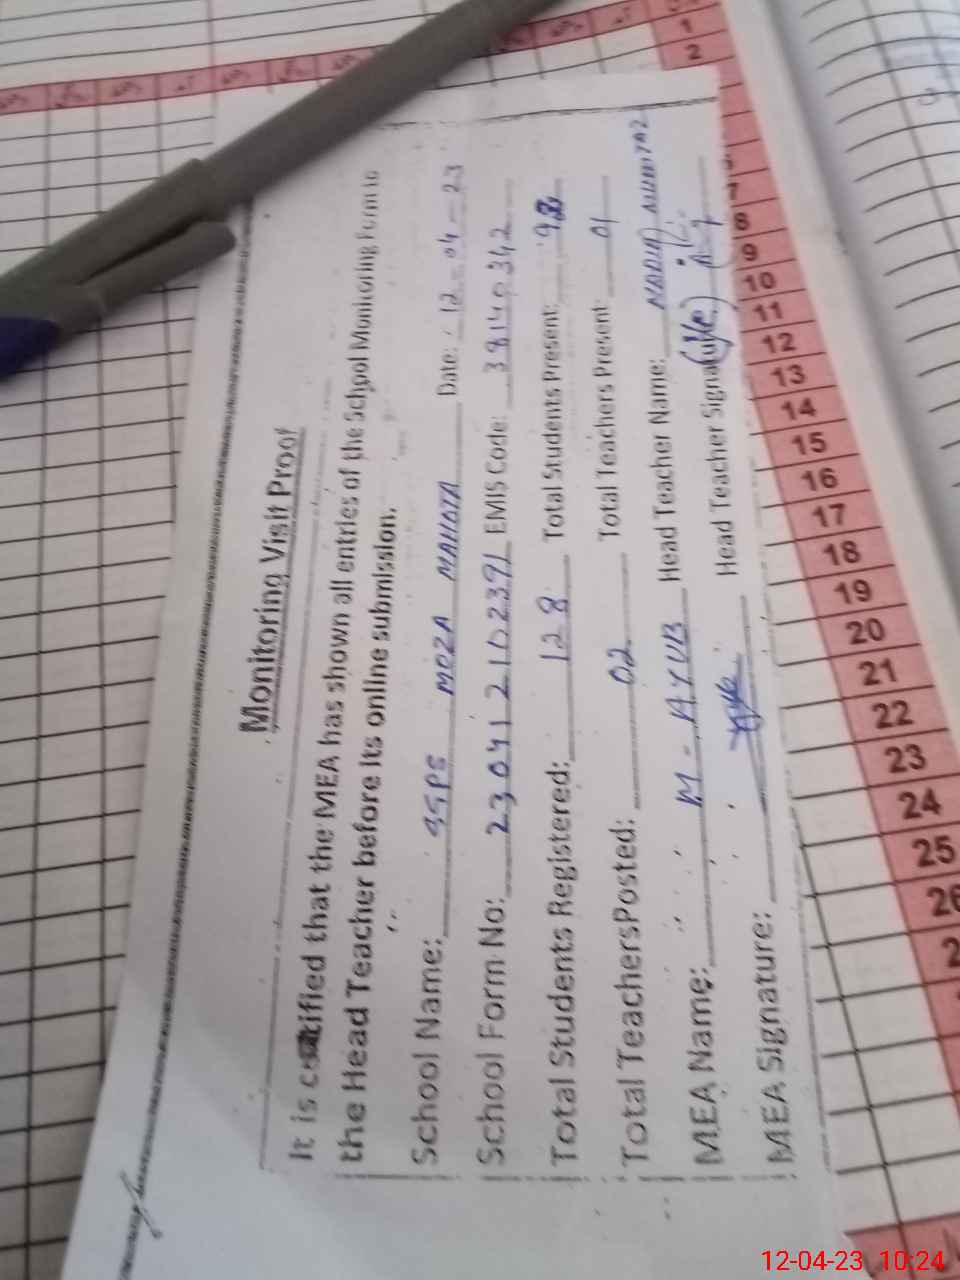 Monitoring Visit Proof
It is certified that the MEA has shown all entries of the School Monitoring Form to
the Head Teacher before its online submission.
School Name: GGPS MOZA MAHOTA Date: 12-04-23
School Form No: 230412102391 EMIS Code: 38140342
Total Students Registered: 128 Total Students Present: 98
Total TeachersPosted: 02 Total Teachers Present: 01
MEA Name: M-AYUB Head Teacher Name: NADIA MUMTAZ
MEA Signature: Head Teacher Signature:
1
2
7
8
9
10
11
12
13
14
15
16
17
18
19
20
21
22
23
24
25
26
12-04-23 10:24